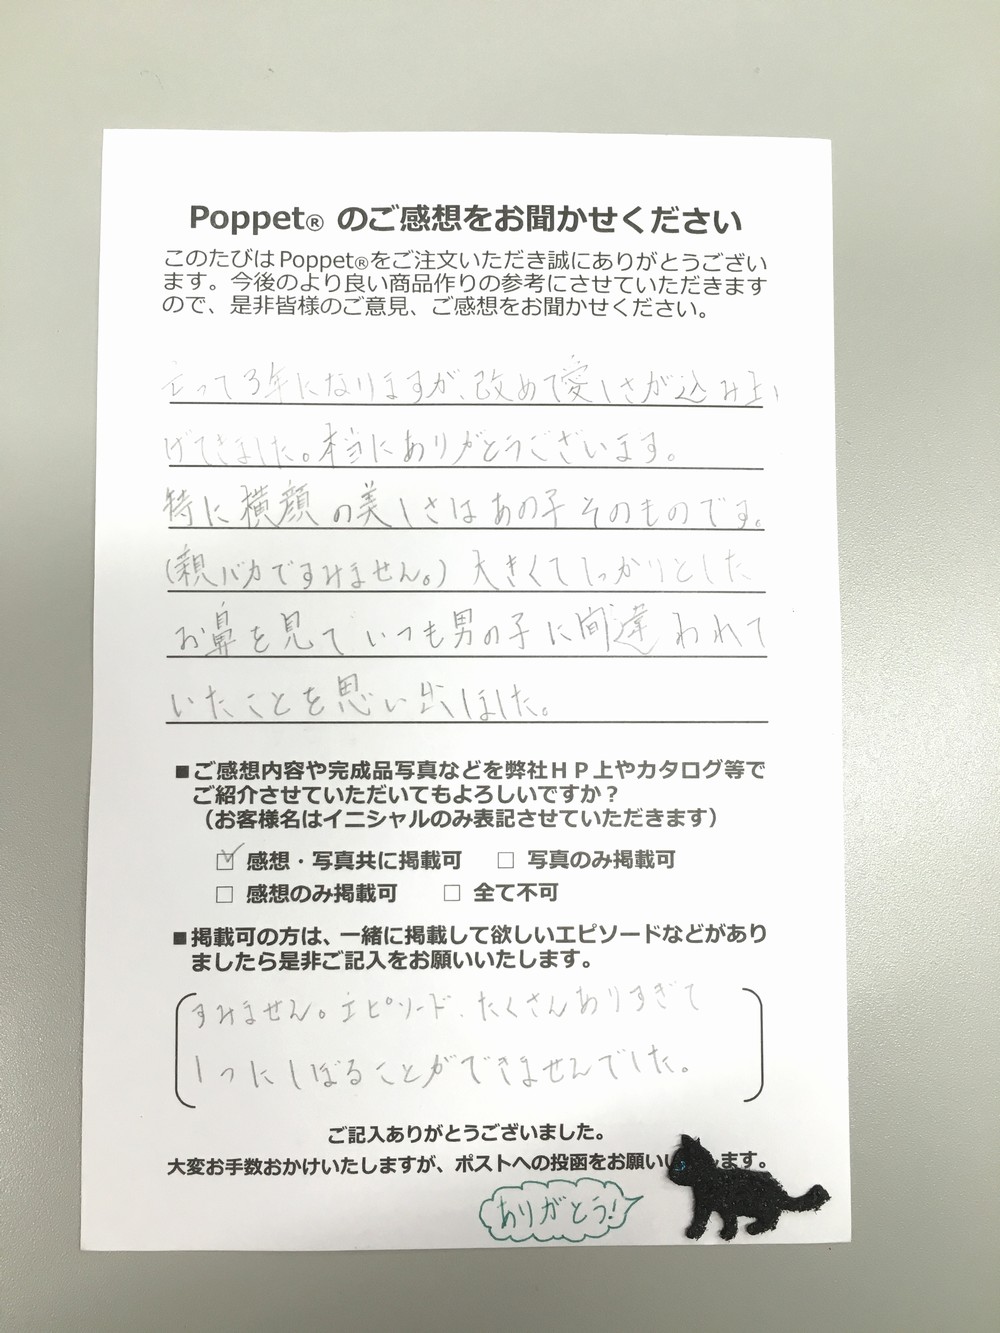 Poppet® のご感想をお聞かせください
このたびはPoppet®をご注文いただき誠にありがとうござい
ます。今後のより良い商品作りの参考にさせていただきます
ので、是非皆様のご意見、ご感想をお聞かせください。
立って3年になりますが、改めて愛しさが込み上
げてきました。本当にありがとうございます。
特に横顔の美しさはあの子そのものです。
(親バカですみません。) 大きくてしっかりとした
お鼻を見ていつも男の子に間違われて
いたことを思い出しました。
■ご感想内容や完成品写真などを弊社HP上やカタログ等で
ご紹介させていただいてもよろしいですか？
（お客様名はイニシャルのみ表記させていただきます）
☑ 感想・写真共に掲載可 □ 写真のみ掲載可
□ 感想のみ掲載可 □ 全て不可
■掲載可の方は、一緒に掲載して欲しいエピソードなどがあり
ましたら是非ご記入をお願いいたします。
すみません。エピソード、たくさんありすぎて
1つにしぼることができませんでした。
ご記入ありがとうございました。
大変お手数おかけいたしますが、ポストへの投函をお願いい します。
ありがとう!